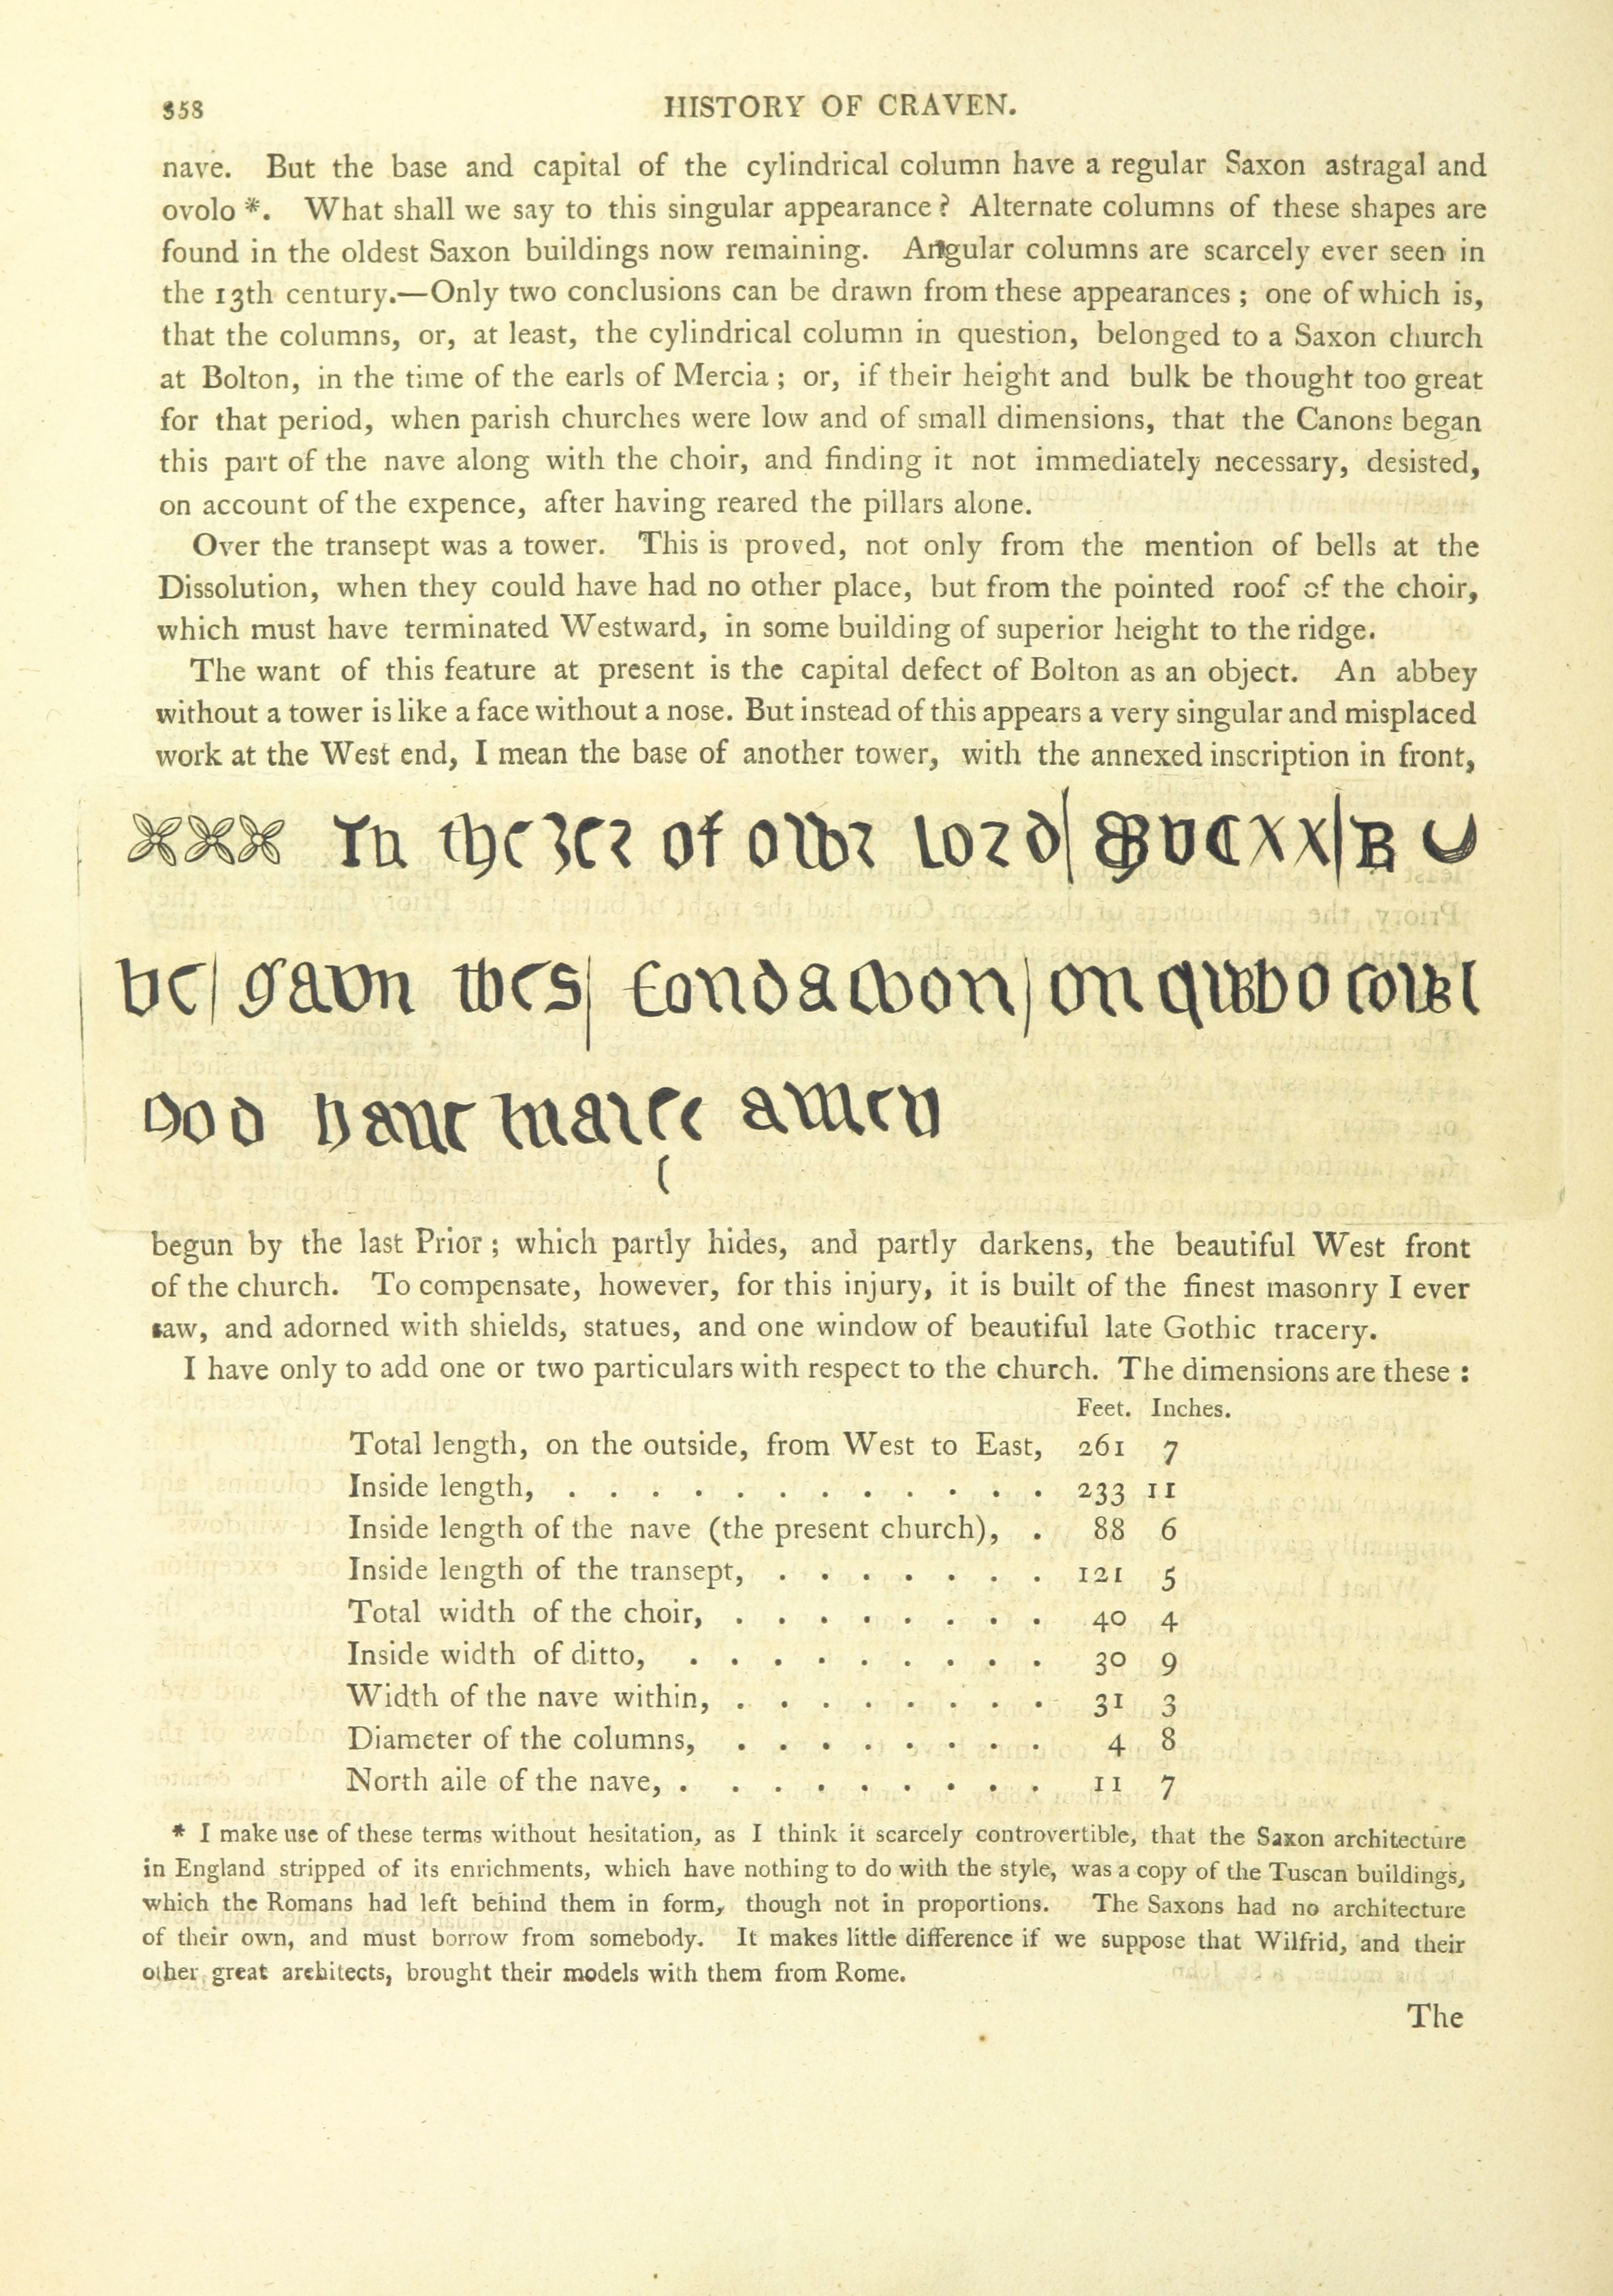 358 HISTORY OF CRAVEN.
nave. But the base and capital of the cylindrical column have a regular Saxon astragal and
ovolo *. What shall we say to this singular appearance? Alternate columns of these shapes are
found in the oldest Saxon buildings now remaining. Angular columns are scarcely ever seen in
the 13th century.—Only two conclusions can be drawn from these appearances; one of which is,
that the columns, or, at least, the cylindrical column in question, belonged to a Saxon church
at Bolton, in the time of the earls of Mercia; or, if their height and bulk be thought too great
for that period, when parish churches were low and of small dimensions, that the Canons began
this part of the nave along with the choir, and finding it not immediately necessary, desisted,
on account of the expence, after having reared the pillars alone.
Over the transept was a tower. This is proved, not only from the mention of bells at the
Dissolution, when they could have had no other place, but from the pointed roof of the choir,
which must have terminated Westward, in some building of superior height to the ridge.
The want of this feature at present is the capital defect of Bolton as an object. An abbey
without a tower is like a face without a nose. But instead of this appears a very singular and misplaced
work at the West end, I mean the base of another tower, with the annexed inscription in front,
In the ȝer of owr Lord
be gaun thes fondacyon on
god amen
begun by the last Prior; which partly hides, and partly darkens, the beautiful West front
of the church. To compensate, however, for this injury, it is built of the finest masonry I ever
saw, and adorned with shields, statues, and one window of beautiful late Gothic tracery.
I have only to add one or two particulars with respect to the church. The dimensions are these:
Feet. Inches.
Total length, on the outside, from West to East, 261 7
Inside length, . . . . . . . . . . . . 233 11
Inside length of the nave (the present church), . 88 6
Inside length of the transept, . . . . . . . 121 5
Total width of the choir, . . . . . . . . 40 4
Inside width of ditto, . . . . . . . . . 30 9
Width of the nave within, . . . . . . . . 31 3
Diameter of the columns, . . . . . . . . 4 8
North aile of the nave, . . . . . . . . . 11 7
* I make use of these terms without hesitation, as I think it scarcely controvertible, that the Saxon architecture
in England stripped of its enrichments, which have nothing to do with the style, was a copy of the Tuscan buildings,
which the Romans had left behind them in form, though not in proportions. The Saxons had no architecture
of their own, and must borrow from somebody. It makes little difference if we suppose that Wilfrid, and their
other great architects, brought their models with them from Rome.
The